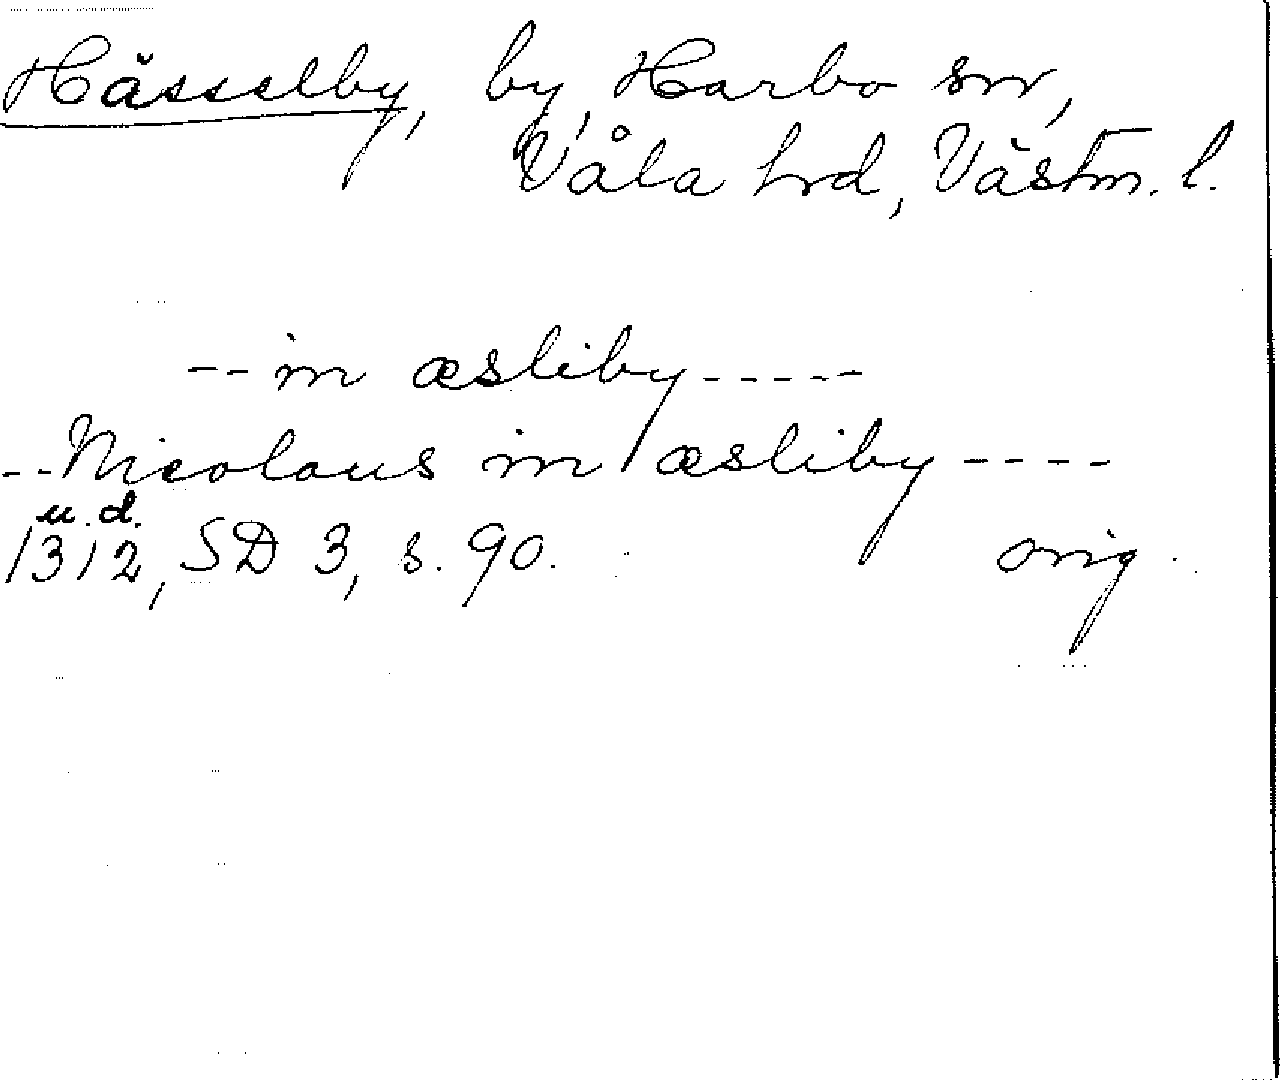 Hässelby, by, Harbo sn,
Våla hrd, Västm. l.
-- in æsliby -----
-- Nicolaus in æsliby ----
u. d.
1312, SD 3, s. 90. orig.